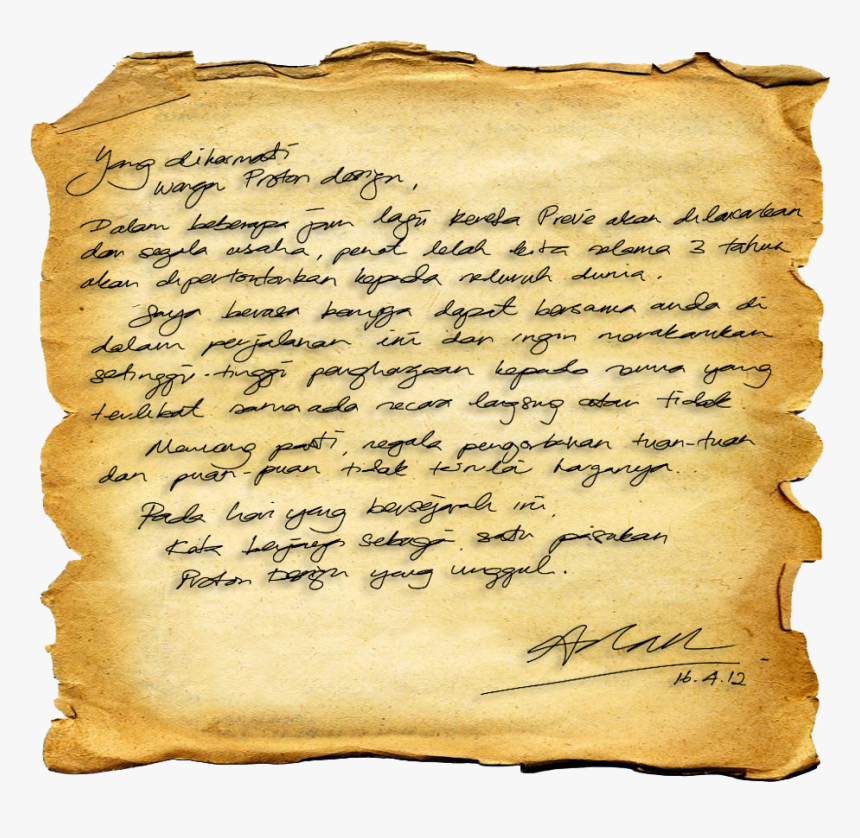 Yang dihormati
warga Proton design,
Dalam beberapa jam lagi kereta Preve akan dilancarkan
dan segala usaha, penat lelah kita selama 3 tahun
akan dipertontonkan kepada seluruh dunia.
Saya berasa bangga dapat bersama anda di
dalam perjalanan ini dan ingin merakamkan
setinggi-tinggi penghargaan kepada semua yang
terlibat samaada secara langsung atau tidak.
Memang pasti, segala pengorbanan tuan-tuan
dan puan-puan tidak ternilai harganya..
Pada hari yang bersejarah ini,
Kita berjaya sebagai satu pasukan
Proton Design yang unggul.
16.4.12